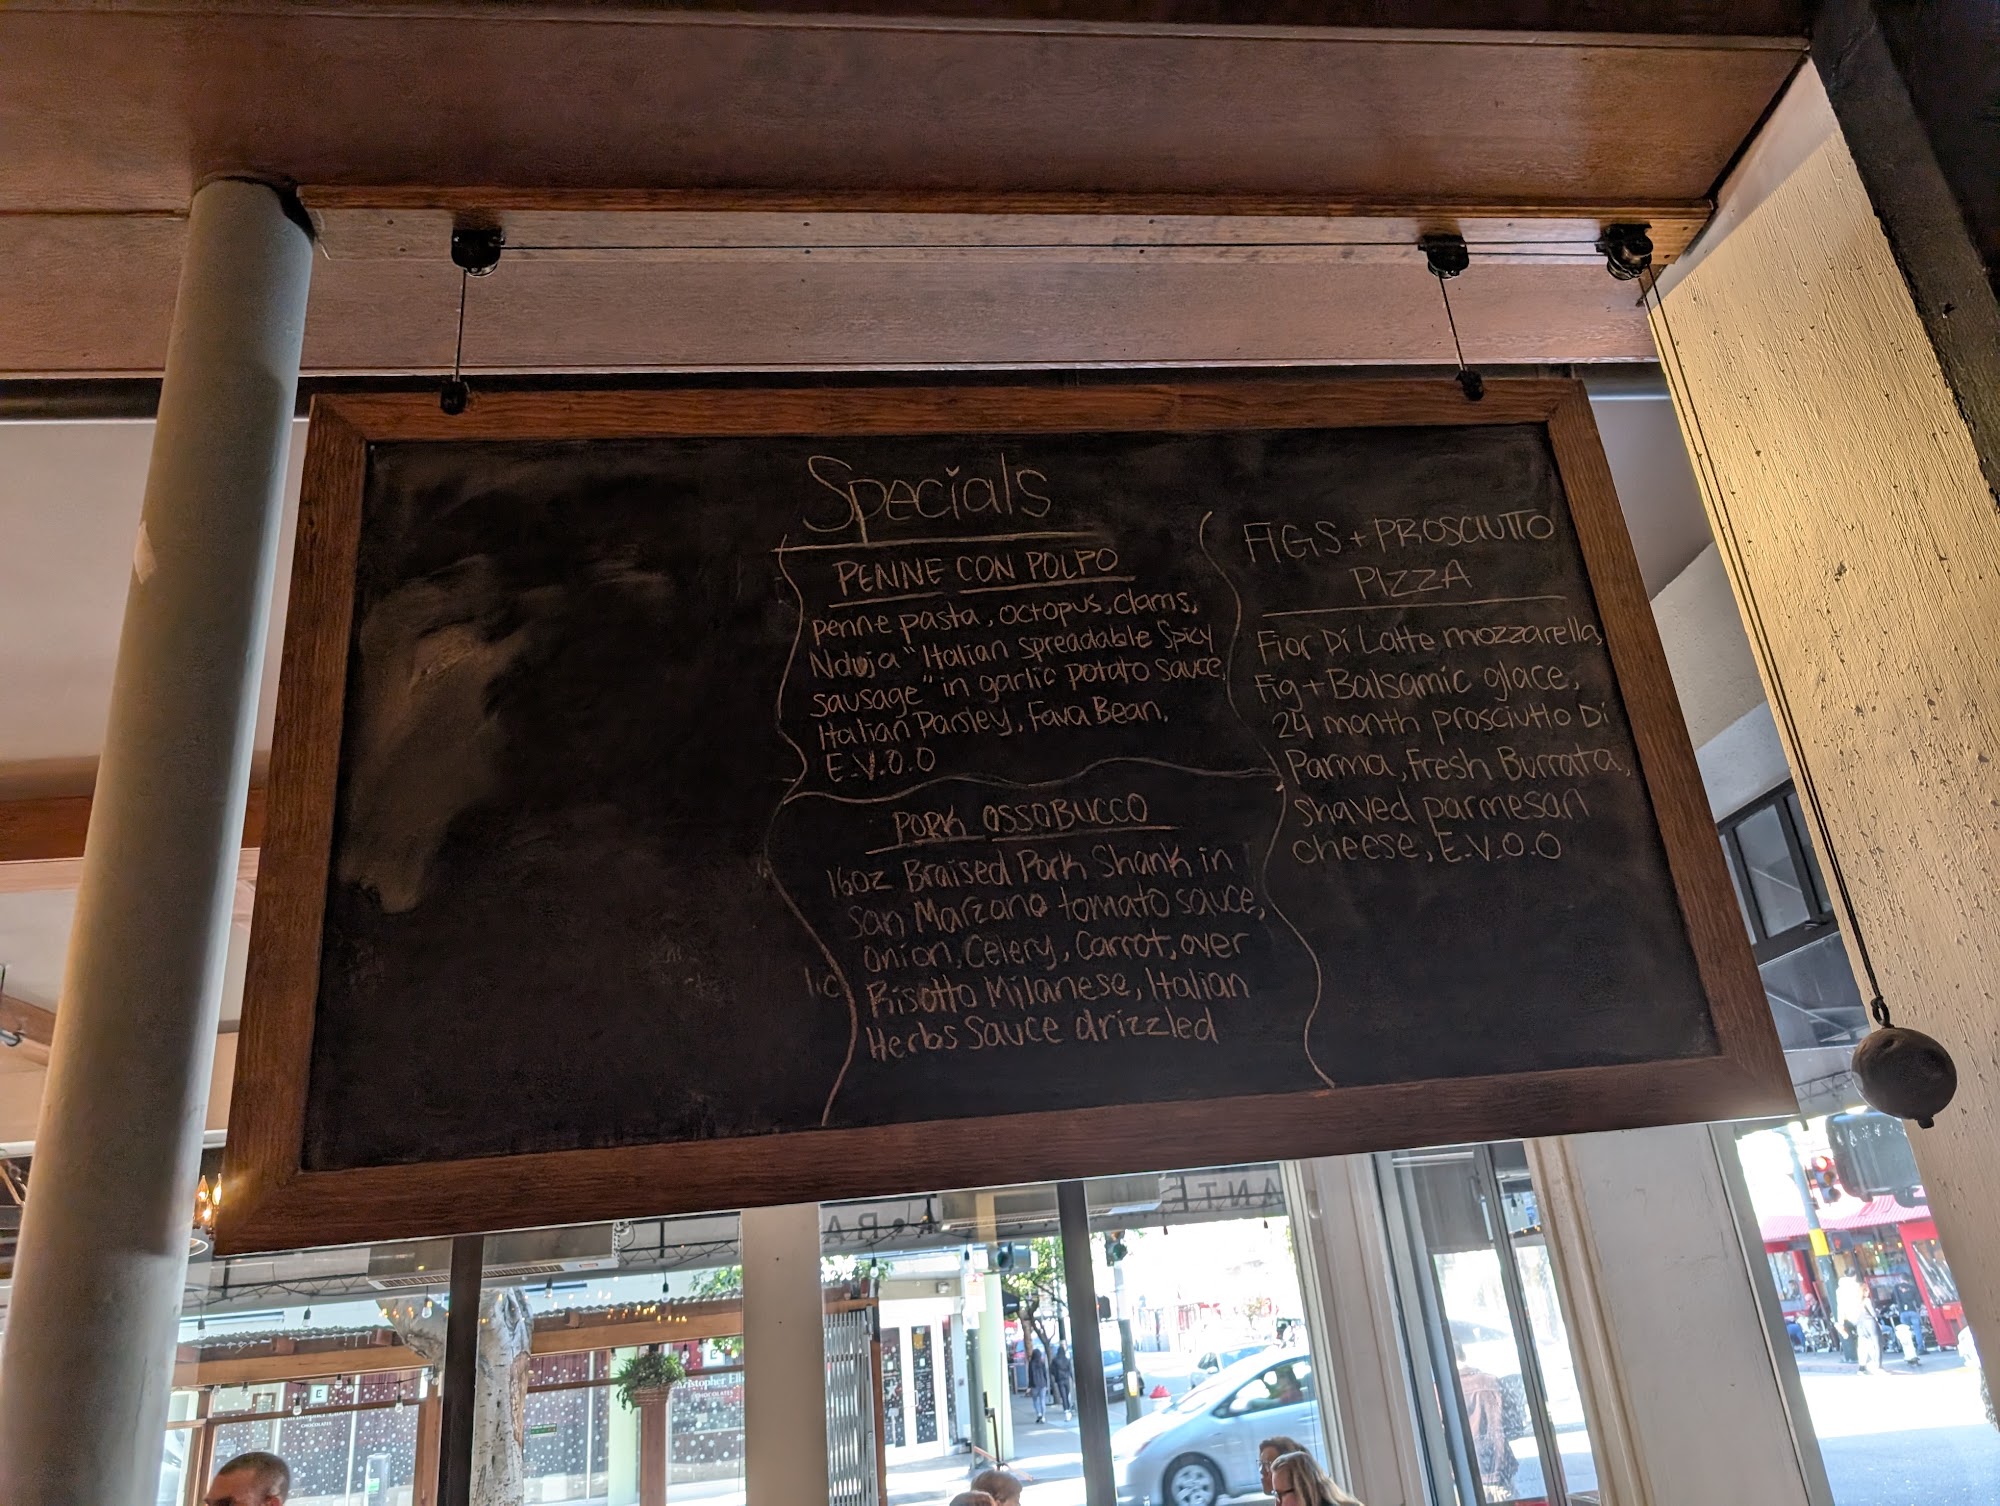 Specials
PENNE CON POLPO
penne pasta, octopus, clams,
Nduja "Italian spreadable Spicy
sausage" in garlic potato sauce,
Italian Parsley, Fava Bean,
E.V.O.O
PORK OSSOBUCCO
16oz Braised Pork Shank in
San Marzano tomato sauce,
onion, Celery, Carrot, over
Risotto Milanese, Italian
Herbs Sauce drizzled
FIGS + PROSCIUTTO
PIZZA
Fior Di Latte mozzarella,
Fig + Balsamic glace,
24 month prosciutto Di
Parma, Fresh Burrata,
shaved parmesan
cheese, E.V.O.O
ANTE
CHOCOLATES